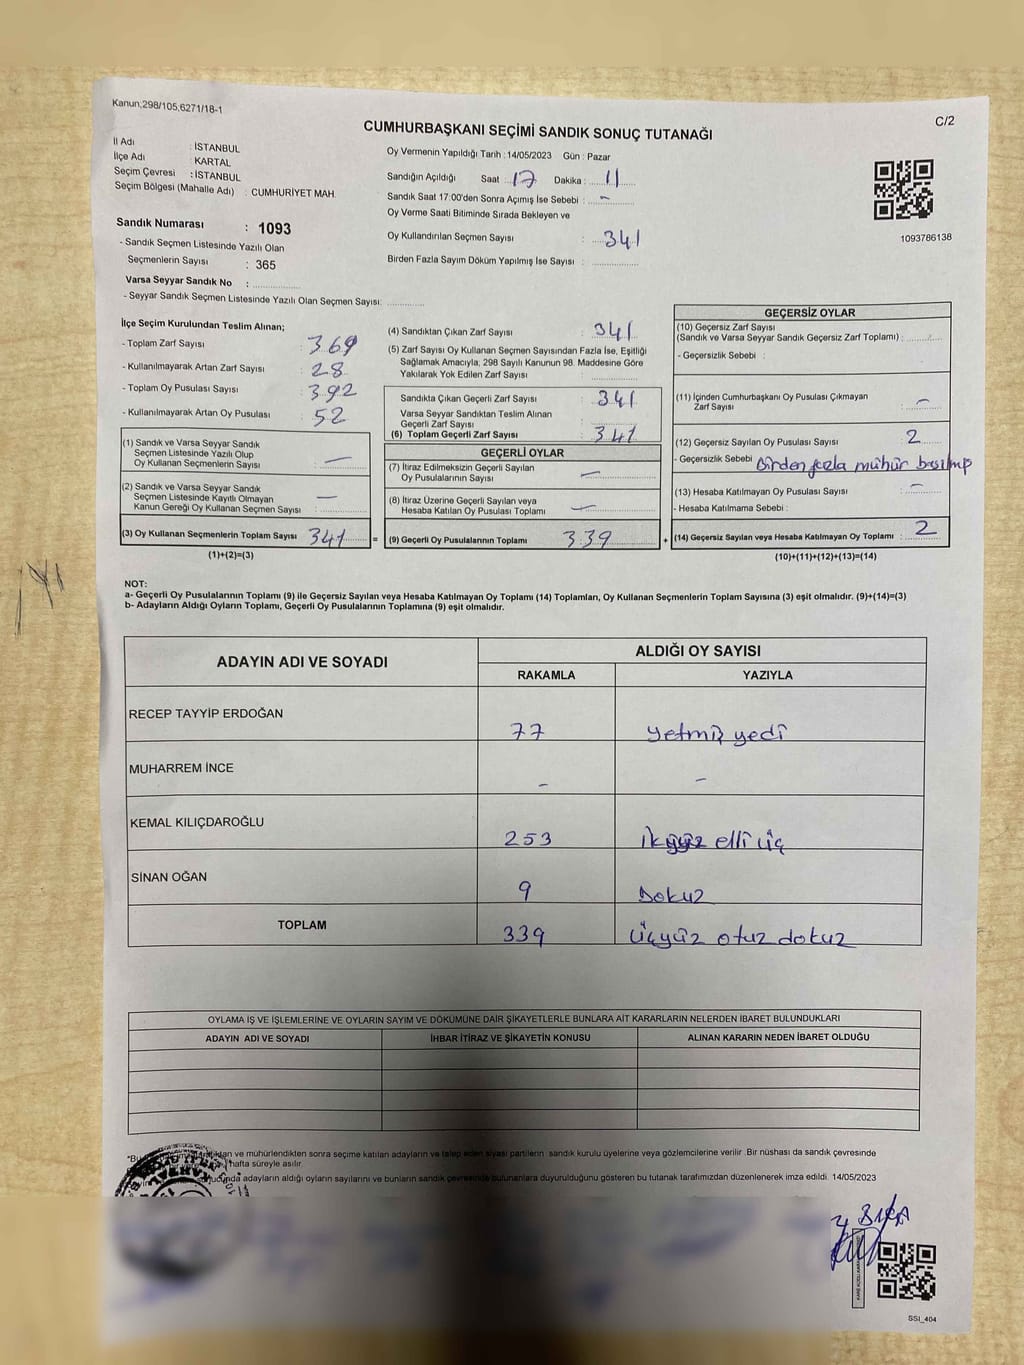 Kanun;298/105,6271/18-1
C/2
CUMHURBAŞKANI SEÇİMİ SANDIK SONUÇ TUTANAĞI
İl Adı : İSTANBUL
İlçe Adı : KARTAL
Seçim Çevresi : İSTANBUL
Seçim Bölgesi (Mahalle Adı) : CUMHURİYET MAH.
Sandık Numarası : 1093
- Sandık Seçmen Listesinde Yazılı Olan
Seçmenlerin Sayısı : 365
Varsa Seyyar Sandık No :
- Seyyar Sandık Seçmen Listesinde Yazılı Olan Seçmen Sayısı:
Oy Vermenin Yapıldığı Tarih : 14/05/2023 Gün : Pazar
Sandığın Açıldığı Saat 17 Dakika : 11
Sandık Saat 17:00'den Sonra Açımış İse Sebebi : -
Oy Verme Saati Bitiminde Sırada Bekleyen ve
Oy Kullandırılan Seçmen Sayısı : 341
Birden Fazla Sayım Döküm Yapılmış İse Sayısı :
1093786138
İlçe Seçim Kurulundan Teslim Alınan;
- Toplam Zarf Sayısı : 369
- Kullanılmayarak Artan Zarf Sayısı : 28
- Toplam Oy Pusulası Sayısı : 392
- Kullanılmayarak Artan Oy Pusulası : 52
(1) Sandık ve Varsa Seyyar Sandık
Seçmen Listesinde Yazılı Olup
Oy Kullanan Seçmenlerin Sayısı : -
(2) Sandık ve Varsa Seyyar Sandık
Seçmen Listesinde Kayıtlı Olmayan
Kanun Gereği Oy Kullanan Seçmen Sayısı : -
(3) Oy Kullanan Seçmenlerin Toplam Sayısı : 341 =
(1)+(2)=(3)
(4) Sandıktan Çıkan Zarf Sayısı : 341
(5) Zarf Sayısı Oy Kullanan Seçmen Sayısından Fazla İse, Eşitliği
Sağlamak Amacıyla; 298 Sayılı Kanunun 98. Maddesine Göre
Yakılarak Yok Edilen Zarf Sayısı :
Sandıkta Çıkan Geçerli Zarf Sayısı : 341
Varsa Seyyar Sandıktan Teslim Alınan
Geçerli Zarf Sayısı :
(6) Toplam Geçerli Zarf Sayısı : 341
GEÇERLİ OYLAR
(7) İtiraz Edilmeksizin Geçerli Sayılan
Oy Pusulalarının Sayısı : -
(8) İtiraz Üzerine Geçerli Sayılan veya
Hesaba Katılan Oy Pusulası Toplamı : -
(9) Geçerli Oy Pusulalarının Toplamı : 339 +
GEÇERSİZ OYLAR
(10) Geçersiz Zarf Sayısı
(Sandık ve Varsa Seyyar Sandık Geçersiz Zarf Toplamı) :
- Geçersizlik Sebebi :
(11) İçinden Cumhurbaşkanı Oy Pusulası Çıkmayan
Zarf Sayısı : -
(12) Geçersiz Sayılan Oy Pusulası Sayısı : 2
- Geçersizlik Sebebi Birden fazla mühür basılmış
(13) Hesaba Katılmayan Oy Pusulası Sayısı : -
- Hesaba Katılmama Sebebi :
(14) Geçersiz Sayılan veya Hesaba Katılmayan Oy Toplamı : 2
(10)+(11)+(12)+(13)=(14)
NOT:
a- Geçerli Oy Pusulalarının Toplamı (9) ile Geçersiz Sayılan veya Hesaba Katılmayan Oy Toplamı (14) Toplamları, Oy Kullanan Seçmenlerin Toplam Sayısına (3) eşit olmalıdır. (9)+(14)=(3)
b- Adayların Aldığı Oyların Toplamı, Geçerli Oy Pusulalarının Toplamına (9) eşit olmalıdır.
ADAYIN ADI VE SOYADI
ALDIĞI OY SAYISI
RAKAMLA YAZIYLA
RECEP TAYYİP ERDOĞAN 77 yetmiş yedi
MUHARREM İNCE - -
KEMAL KILIÇDAROĞLU 253 ikiyüz elli üç
SİNAN OĞAN 9 Dokuz
TOPLAM 339 üçyüz otuz dokuz
OYLAMA İŞ VE İŞLEMLERİNE VE OYLARIN SAYIM VE DÖKÜMÜNE DAİR ŞİKAYETLERLE BUNLARA AİT KARARLARIN NELERDEN İBARET BULUNDUKLARI
ADAYIN ADI VE SOYADI İHBAR İTİRAZ VE ŞİKAYETİN KONUSU ALINAN KARARIN NEDEN İBARET OLDUĞU
ve mühürlendikten sonra seçime katılan adayların ve talep eden siyasi partilerin sandık kurulu üyelerine veya gözlemcilerine verilir .Bir nüshası da sandık çevresinde
hafta süreyle asılır.
adayların aldığı oyların sayılarını ve bunların sandık çevresinde bulunanlara duyurulduğunu gösteren bu tutanak tarafımızdan düzenlenerek imza edildi. 14/05/2023
SSI_404